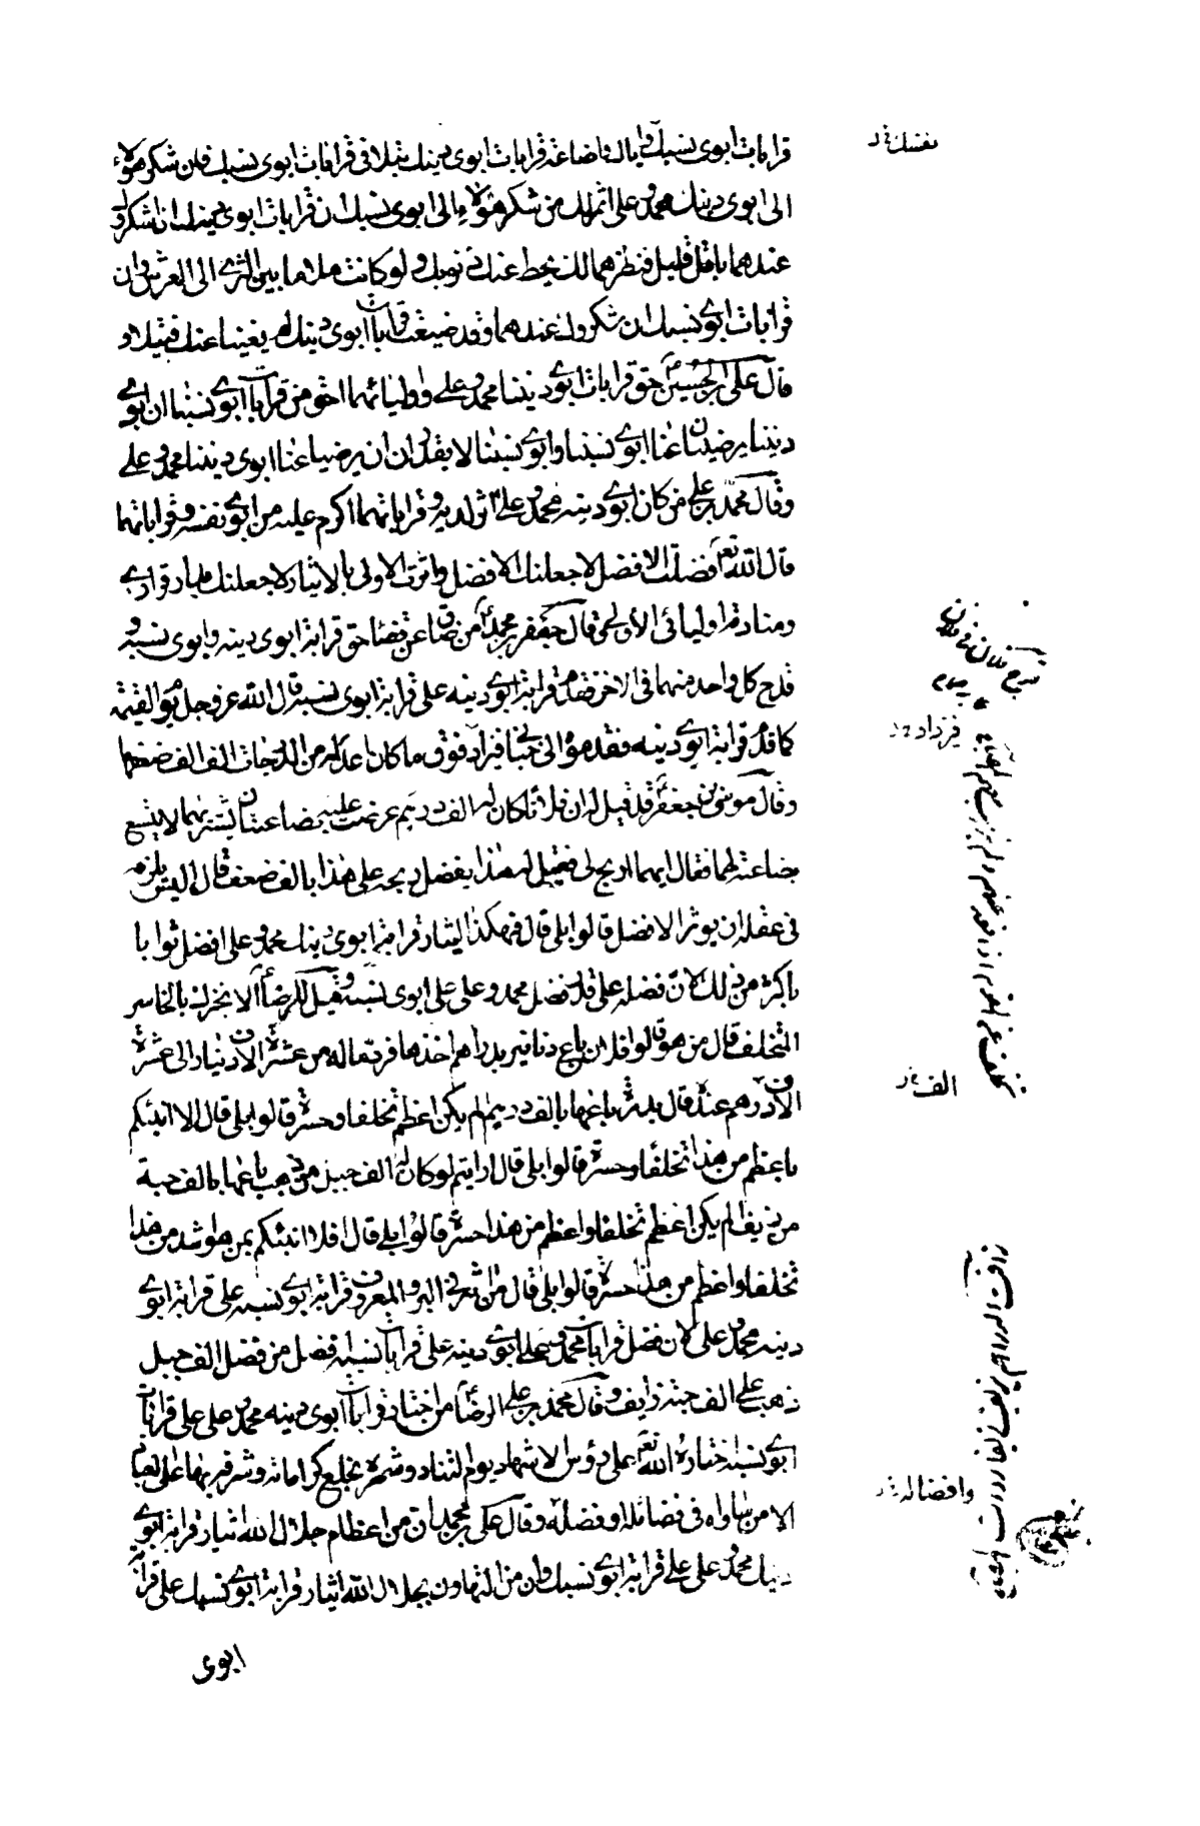 قرابات ابوى نسبك واياك واضاعة قرابات ابوى دينك بتلافى قرابات ابوى نسبك فان شكر هؤلاء
الى ابوى دينك محمد وعلى اثمر لك من شكر هؤلاء الى ابوى نسبك ان قرابات ابوى دينك اذا شكروك
عندهما باقل قليل فنظرهما لك يحط عنك ذنوبك ولو كانت ملأ ما بين الثرى الى العرش وان
قرابات ابوى نسبك ان شكروك عندهما وقد ضيعت قرابات ابوى دينك لم يغنيا عنك فتيلا و
قال على بن الحسين حق قرابات ابوى ديننا محمد وعلى واوليائهما احق من قرابات ابوى نسبنا ان ابوى
ديننا يرضيان عنا ابوى نسبنا وابوى نسبنا لا يقدران ان يرضيا عنا ابوى ديننا محمد وعلى
وقال محمد بن على من كان ابوى دينه محمد وعلى اثر لديه وقراباتهما اكرم عليه من ابوى نفسه وقراباتهما
قال الله تع فضلت الافضل لاجعلنك الافضل واثرت الاولى بالايثار لاجعلنك بدار قرارى
ومنادمة اوليائى الاولى وقال جعفر بن محمد من ضاق عن قضاء حق قرابة ابوى دينه وابوى نسبه و
قدح كل واحد منهما فى الاخر فقدم قرابة ابوى دينه على قرابة ابوى نسبه قال الله عز وجل يوم القيمة
كما قدم قرابة ابوى دينه فقدموه الى جنانى فيزاد فوق ما كان اعد له من الدرجات الف الف ضعفها
وقال موسى بن جعفر وقد قيل له ان فلانا كان له الف درهم عرضت عليه بضاعتان يشتريهما لا يتسع
بضاعته لهما فقال ايهما اربح لى فقيل له هذا يفضل ربحه على هذا بالف ضعف قال اليس يلزمه
فى عقله ان يوثر الافضل قالوا بلى قال فهكذا ايثار قرابة ابوى دينك محمد وعلى افضل ثوابا
باكثر من ذلك لان فضله على قدر فضل محمد وعلى على ابوى نسبه وقيل للرضا الا نخبرك بالخاسر
المتخلف قال من هو قالوا فلان باع دنانيره بدراهم اخذها فرد ماله من عشرة الاف دينار الى عشرة
الاف درهم عندة قال بدرة باعها بالف درهم الم يكن اعظم تخلفا وحسرة قالوا بلى قال الا انبئكم
باعظم من هذا تخلفا وحسرة قالوا بلى قال ارايتم لو كان له الف جبل من ذهب باعها بالف حبة
من زيف الم يكن اعظم تخلفا واعظم من هذا حسرة قالوا بلى قال افلا انبئكم بمن هو اشد من هذا
تخلفا واعظم من هذا حسرة قالوا بلى قال من اثر فى البر والمعروف قرابة ابوى نسبه على قرابة ابوى
دينه محمد وعلى لان فضل قرابات محمد وعلى ابوى دينه على قرابات نسبه افضل من فضل الف جبل
ذهب على الف حبة زايف وقال محمد بن على الرضا من اختار قرابات ابوى دينه محمد وعلى على قرابات
ابوى نسبه اختاره الله تع على رؤس الاشهاد يوم التناد وشهره بخلع كراماته وشرفه بها على العباد
الا من ساواه فى فضائله او فضله وقال على بن محمد ان من اعظام جلال الله ايثار قرابة ابوى
دينك محمد وعلى على قرابة ابوى نسبك وان من التهاون بجلال الله ايثار قرابة ابوى نسبك على قرابة
ابوى
نفسك
فيزداد
الف
وافضاله